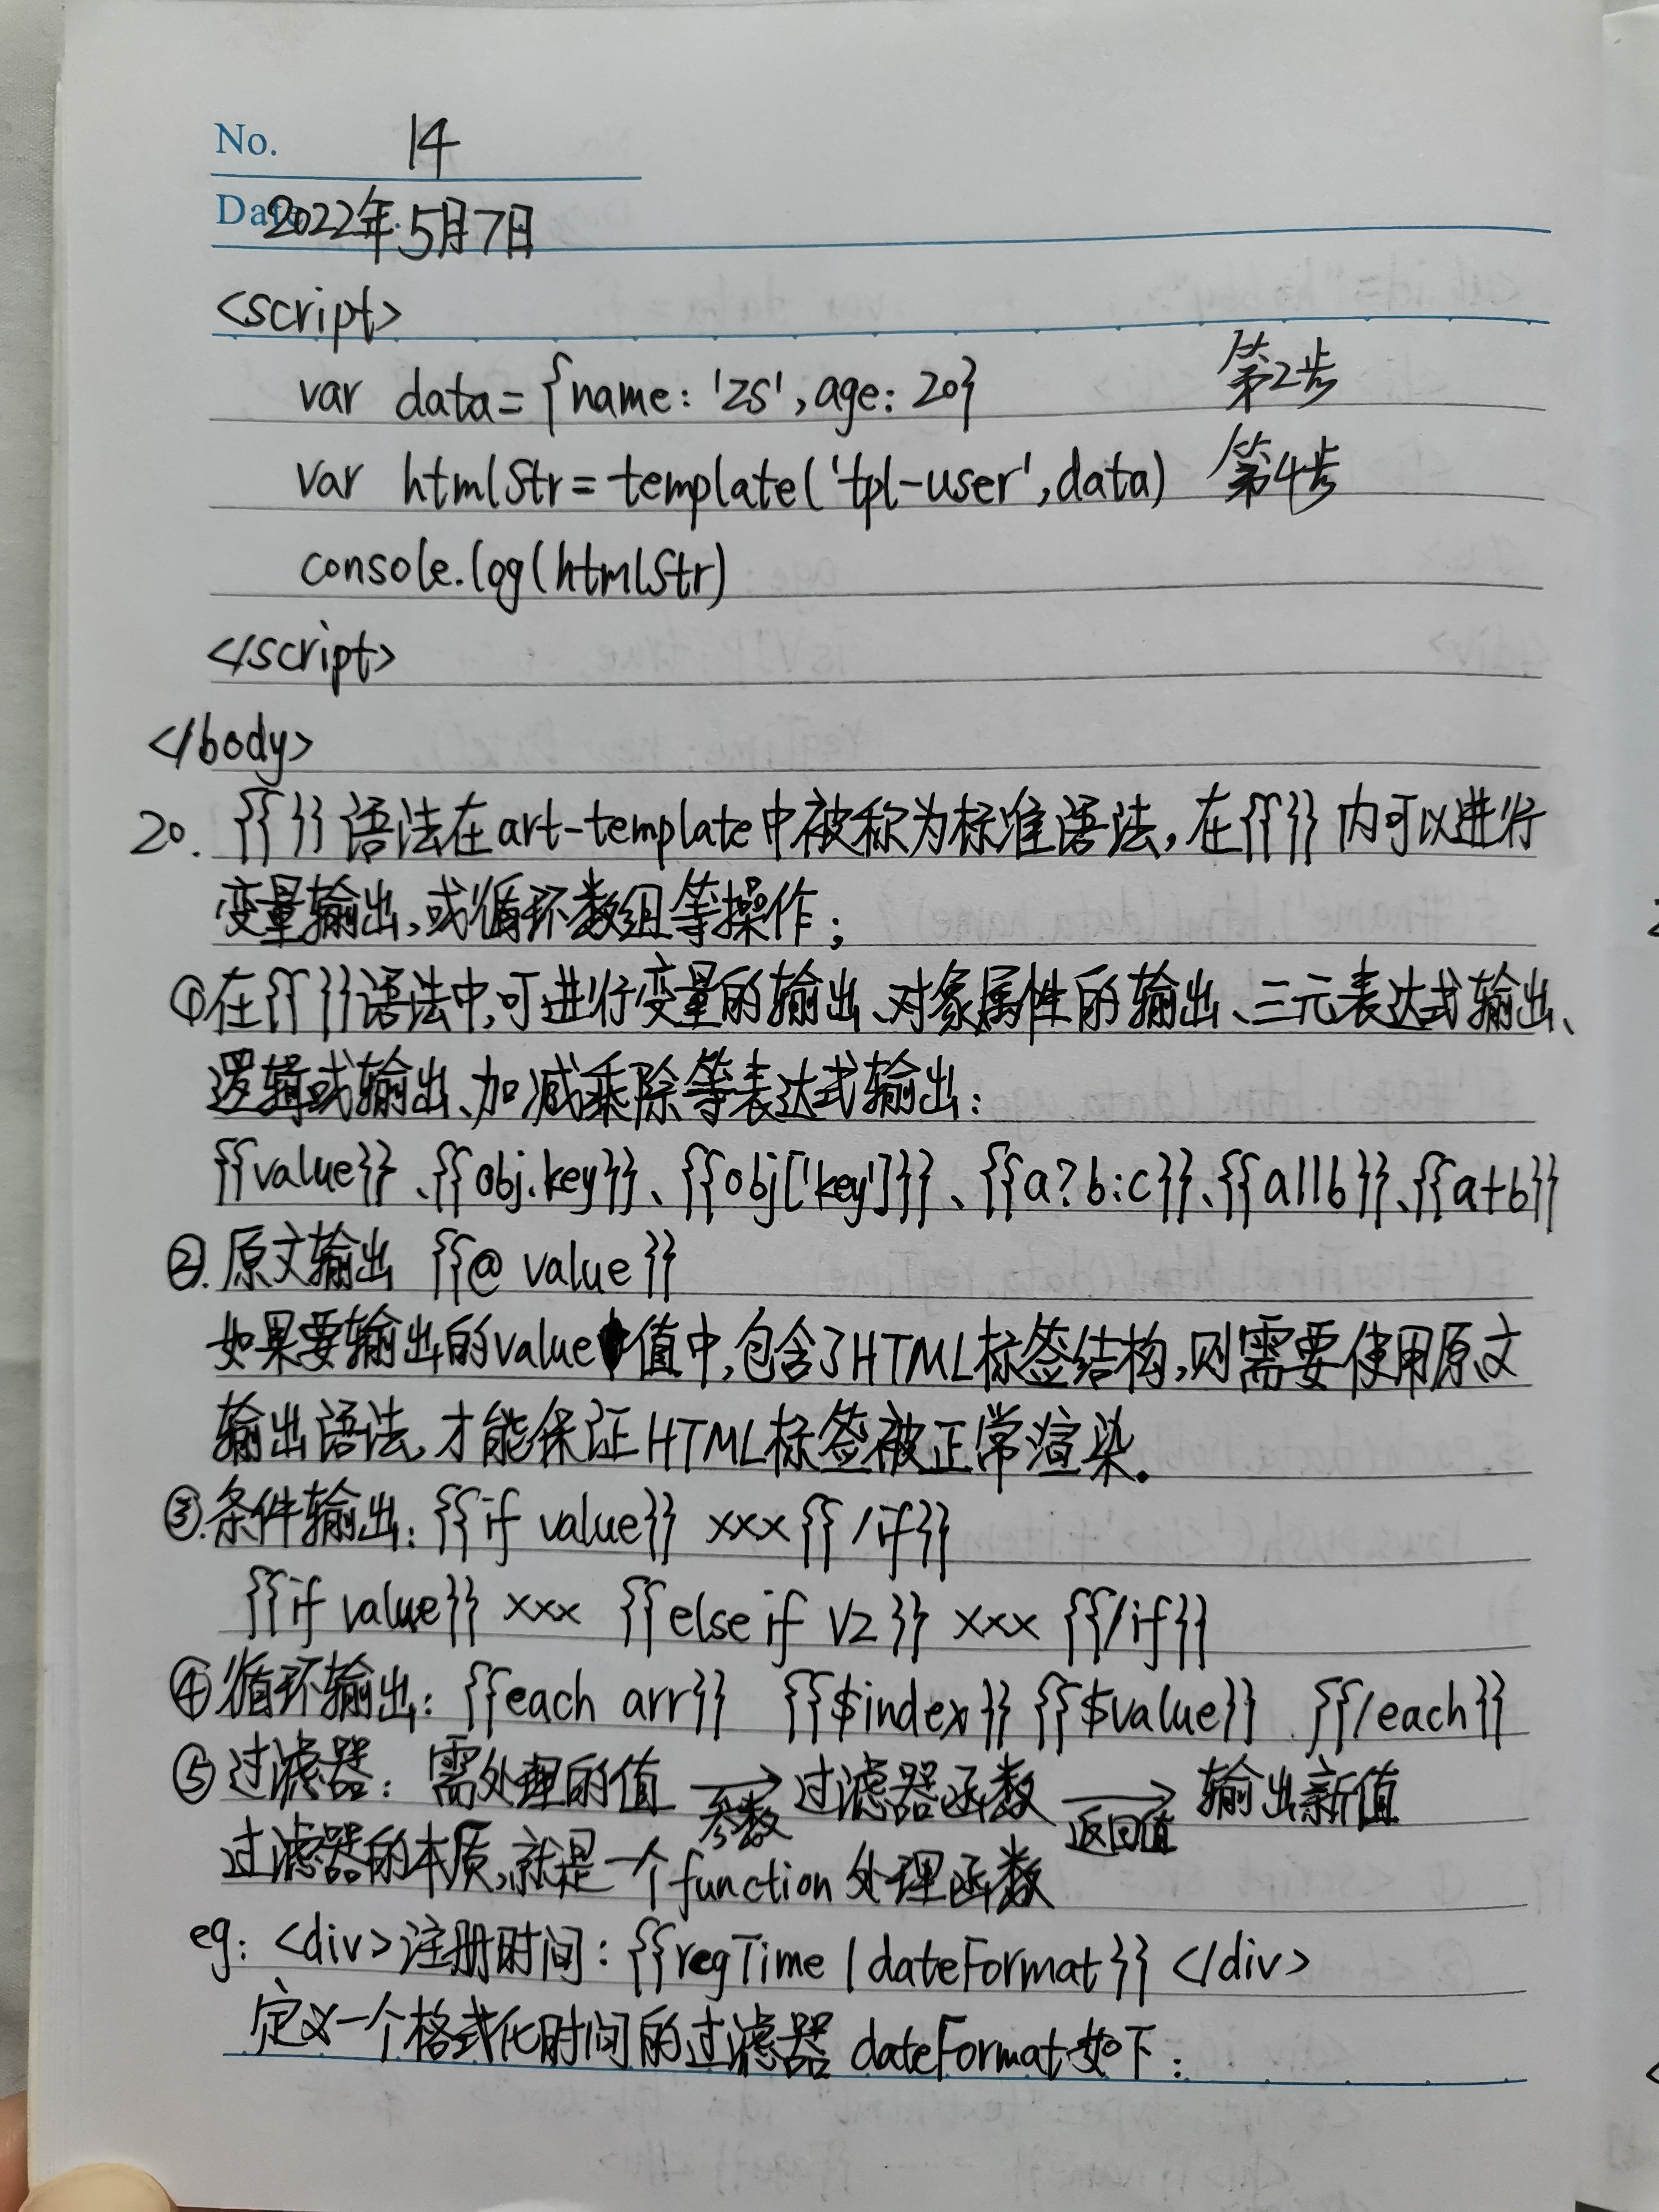 No. 14
Date 2022年5月7日
<script>
var data={name:'zs',age:20} 第2步
var htmlStr=template('tpl-user',data) 第4步
console.log(htmlStr)
</script>
</body>
20. {{}}语法在art-template中被称为标准语法,在{{}}内可以进行
变量输出,或循环数组等操作;
①在{{}}语法中,可进行变量的输出、对象属性的输出、三元表达式输出、
逻辑或输出、加减乘除等表达式输出:
{{value}}、{{obj.key}}、{{obj['key']}}、{{a?b:c}}、{{a||b}}、{{a+b}}
②.原文输出 {{@ value}}
如果要输出的value值中,包含了HTML标签结构,则需要使用原文
输出语法,才能保证HTML标签被正常渲染。
③.条件输出:{{if value}} xxx {{/if}}
{{if value}} xxx {{else if v2}} xxx {{/if}}
④循环输出:{{each arr}} {{$index}} {{$value}} {{/each}}
⑤过滤器:需处理的值 → 过滤器函数 → 输出新值
参数 返回值
过滤器的本质,就是一个function处理函数
eg: <div>注册时间:{{regTime | dateFormat}}</div>
定义一个格式化时间的过滤器dateFormat如下: